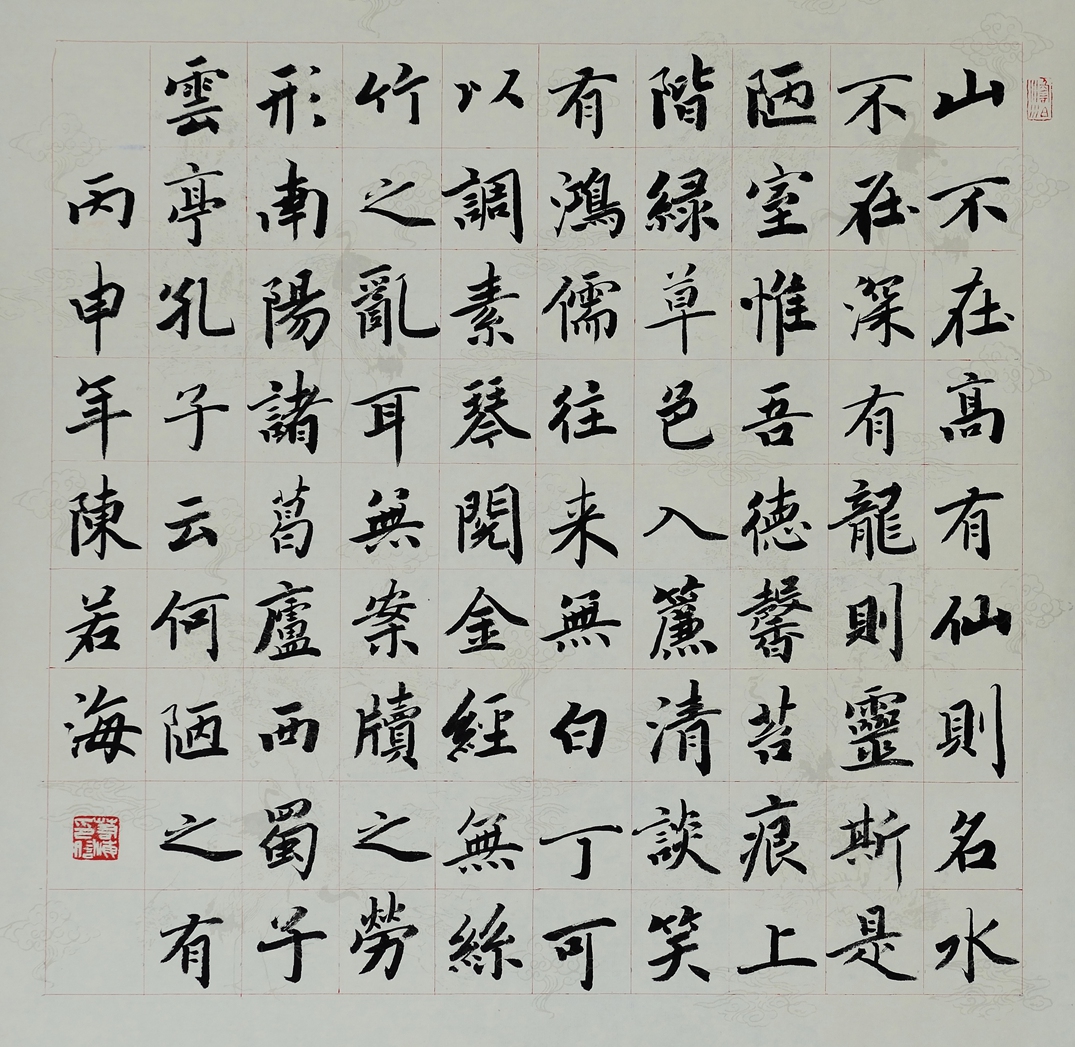 山不在高有仙則名水
不在深有龍則靈斯是
陋室惟吾德馨苔痕上
階緑草色入簾清談笑
有鴻儒往来無白丁可
以調素琴閱金經無絲
竹之亂耳無案牘之勞
形南陽諸葛廬西蜀子
雲亭孔子云何陋之有
丙申年陳若海